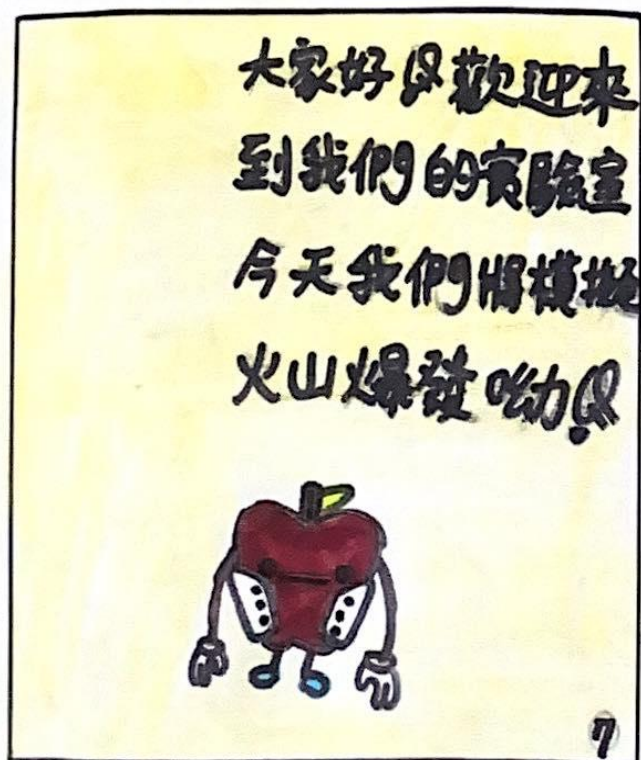 大家好！歡迎來
到我們的實驗室
今天我們將模擬
火山爆發呦！
7